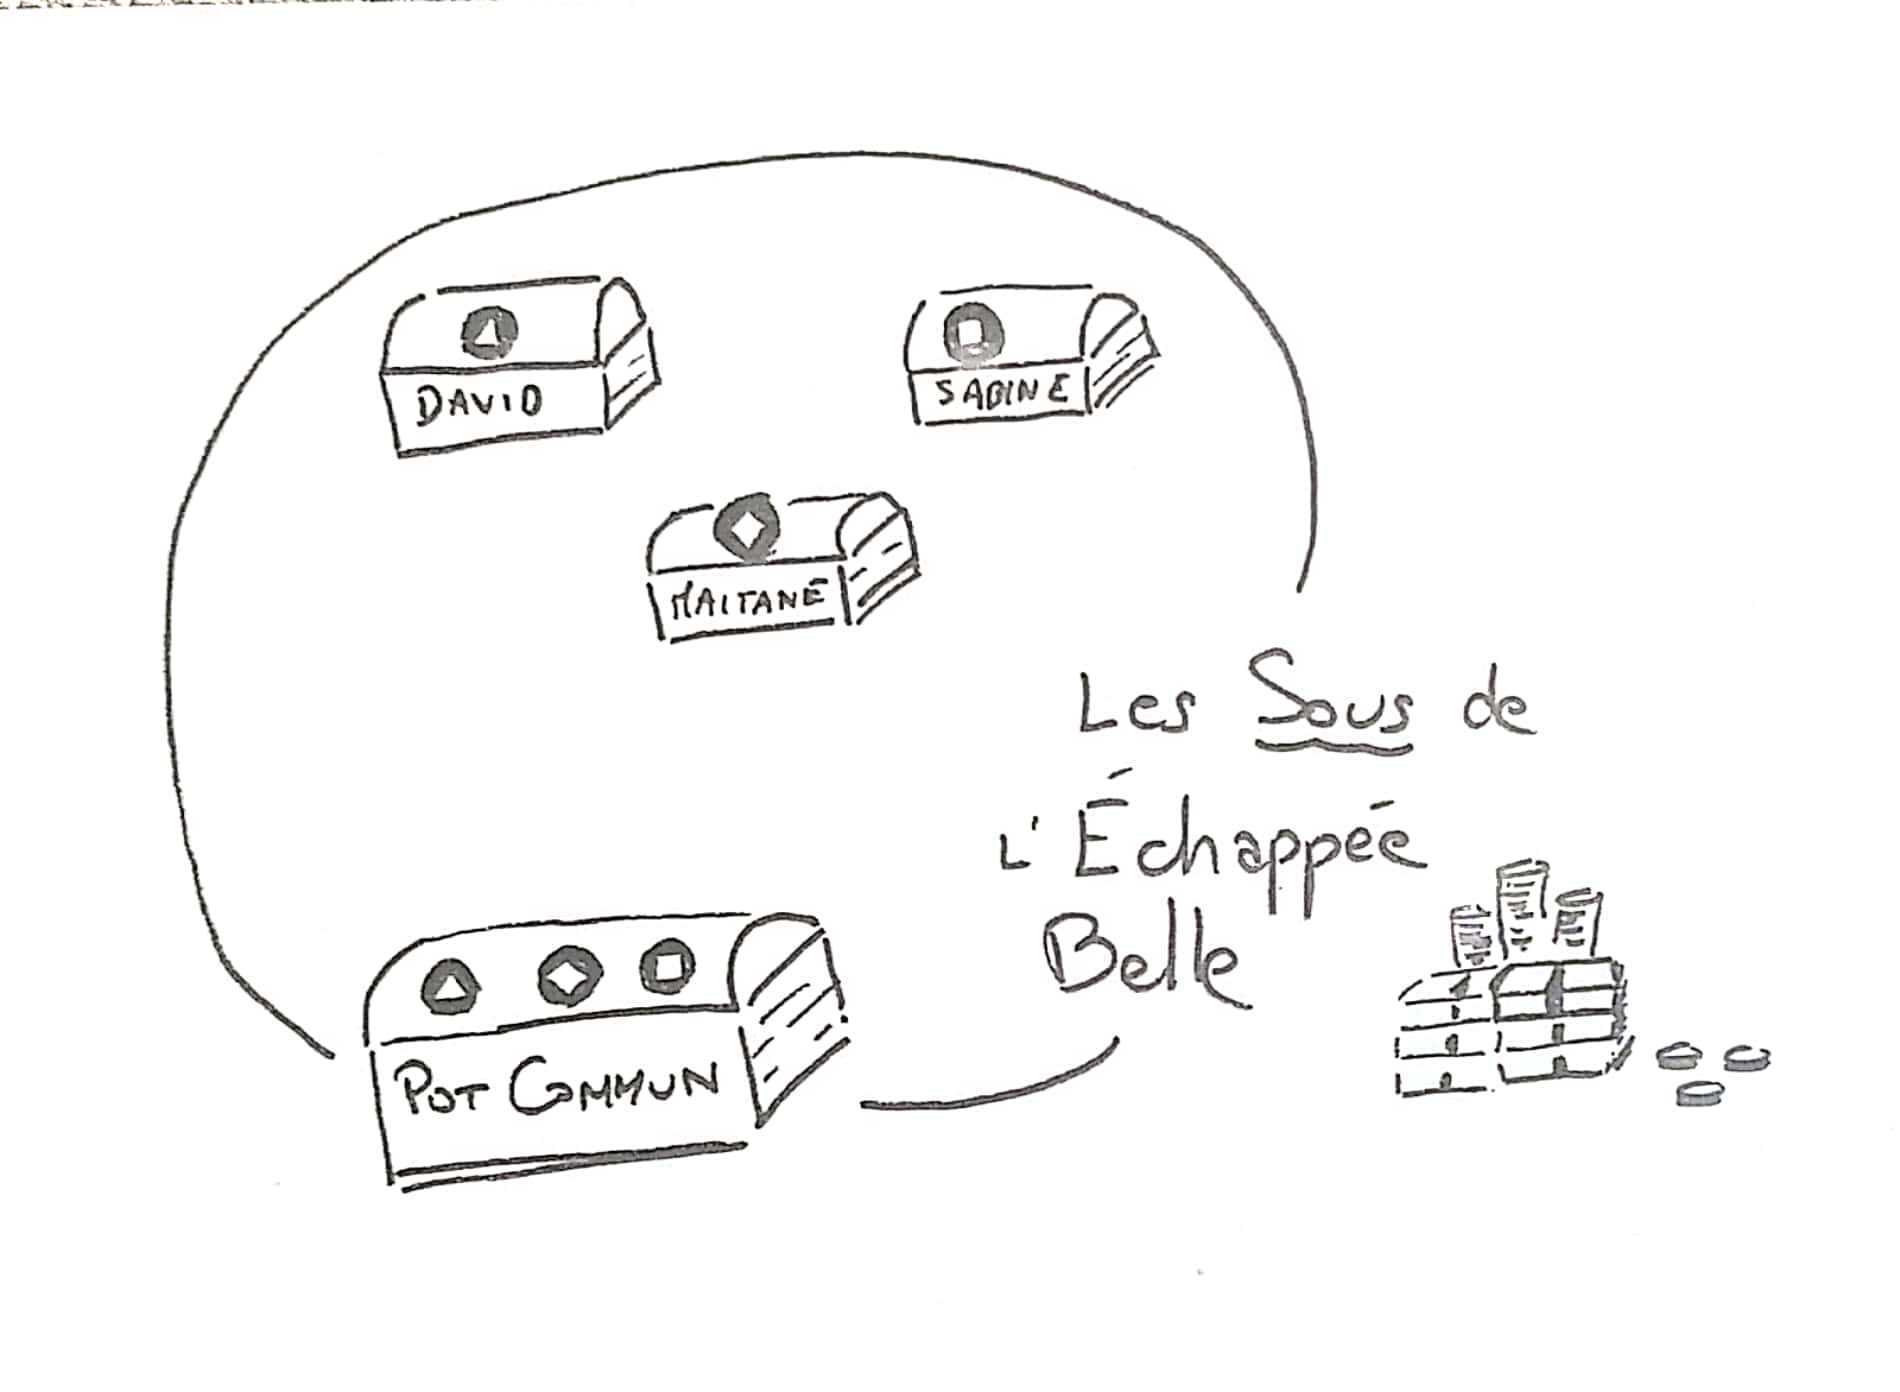 DAVID
SABINE
MAITANE
Les Sous de
L'Échappée
Belle
POT COMMUN